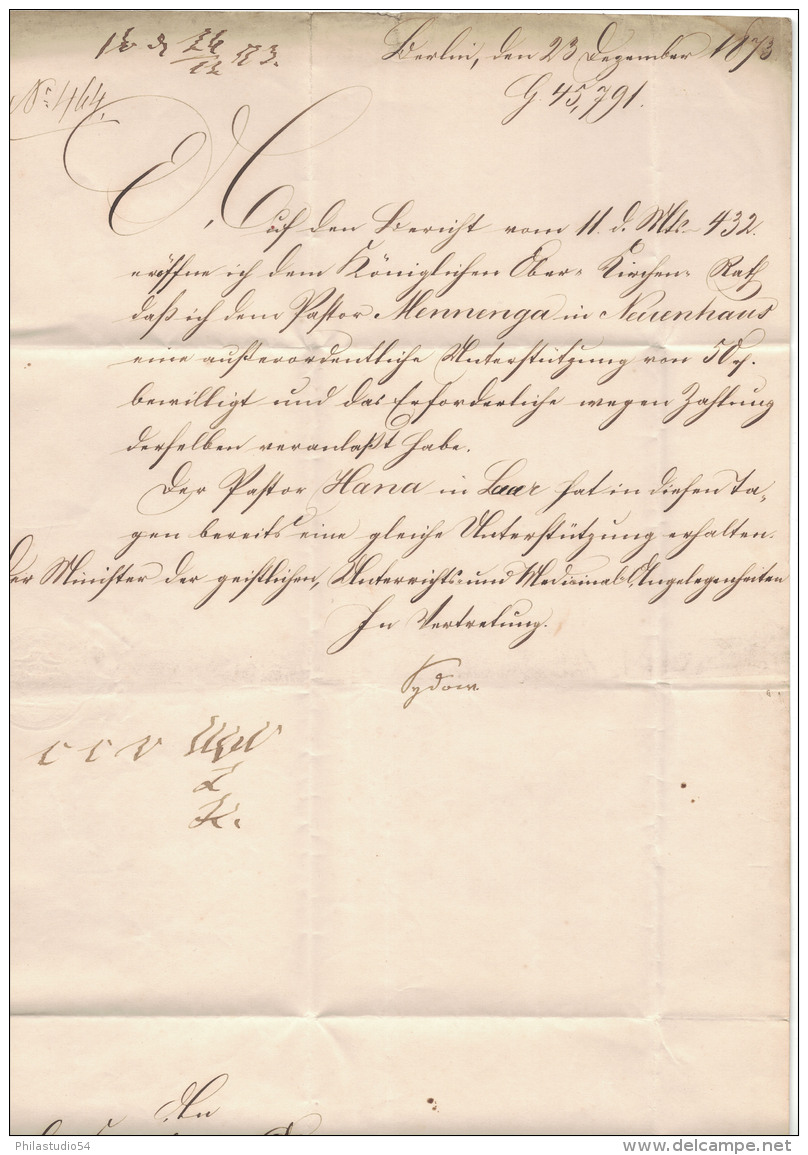 Berlin, den 23 Dezember 1873
G. 45,791.
No. 464.
Auf den Bericht vom 11. d. Mts. 432.
eröffne ich dem Königlichen Ober-Kirchen-Rath
daß ich dem Pastor Mennenga in Neuenhaus
eine außerordentliche Unterstützung von 50
bewilligt und das Erforderliche wegen Zahlung
derselben veranlaßt habe.
Der Pastor Hana in Laar hat in diesen Ta-
gen bereits eine gleiche Unterstützung erhalten.
Der Minister der geistlichen, Unterrichts- und Medicinal-Angelegenheiten
In Vertretung.
Sydow.
An
Philastudio54
delcampe.net